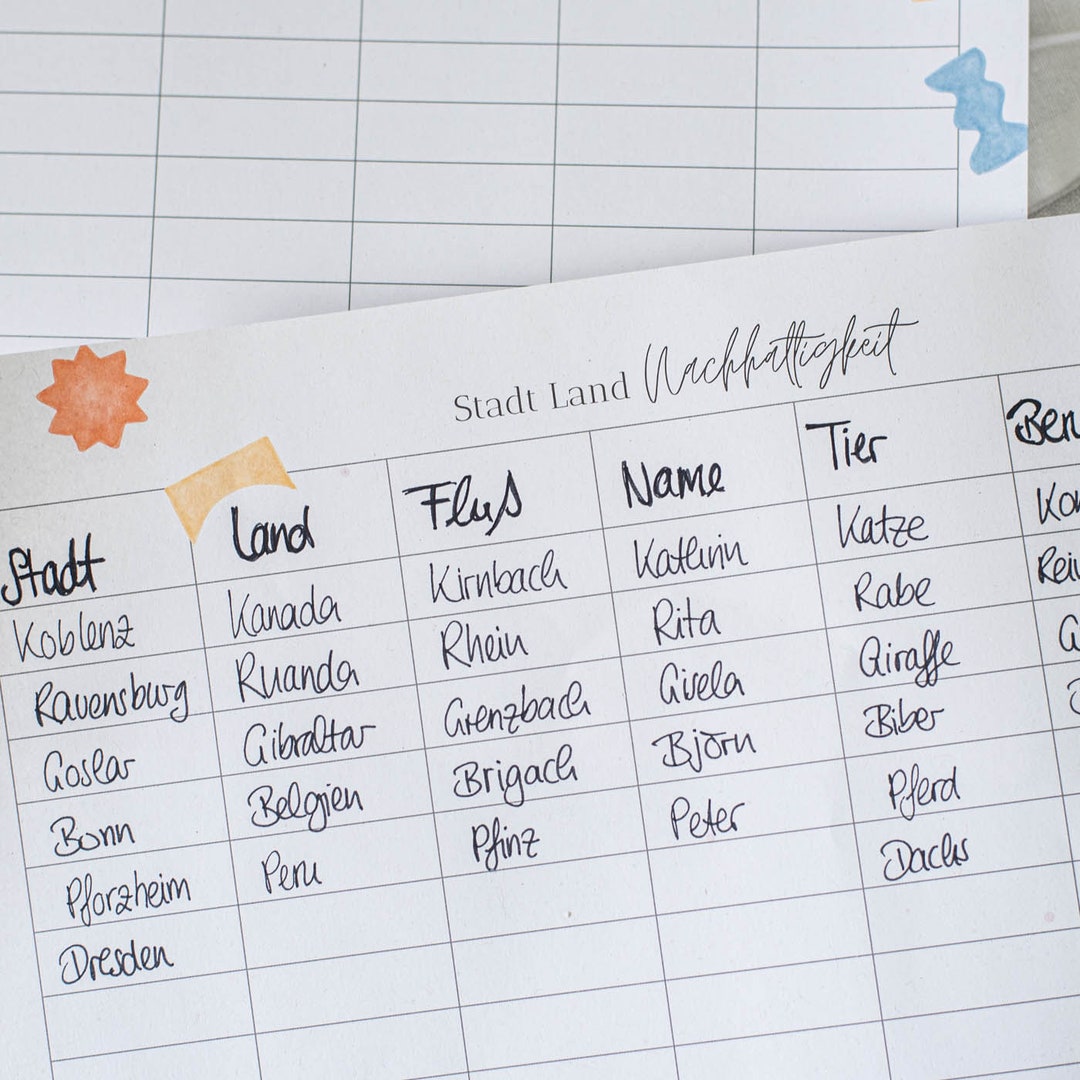 Stadt Land Nachhaltigkeit
Stadt Land Fluß Name Tier
Koblenz Kanada Kirnbach Kathrin Katze
Ravensburg Ruanda Rhein Rita Rabe
Goslar Gibraltar Grenzbach Gisela Giraffe
Bonn Belgien Brigach Björn Biber
Pforzheim Peru Pfinz Peter Pferd
Dresden Dachs